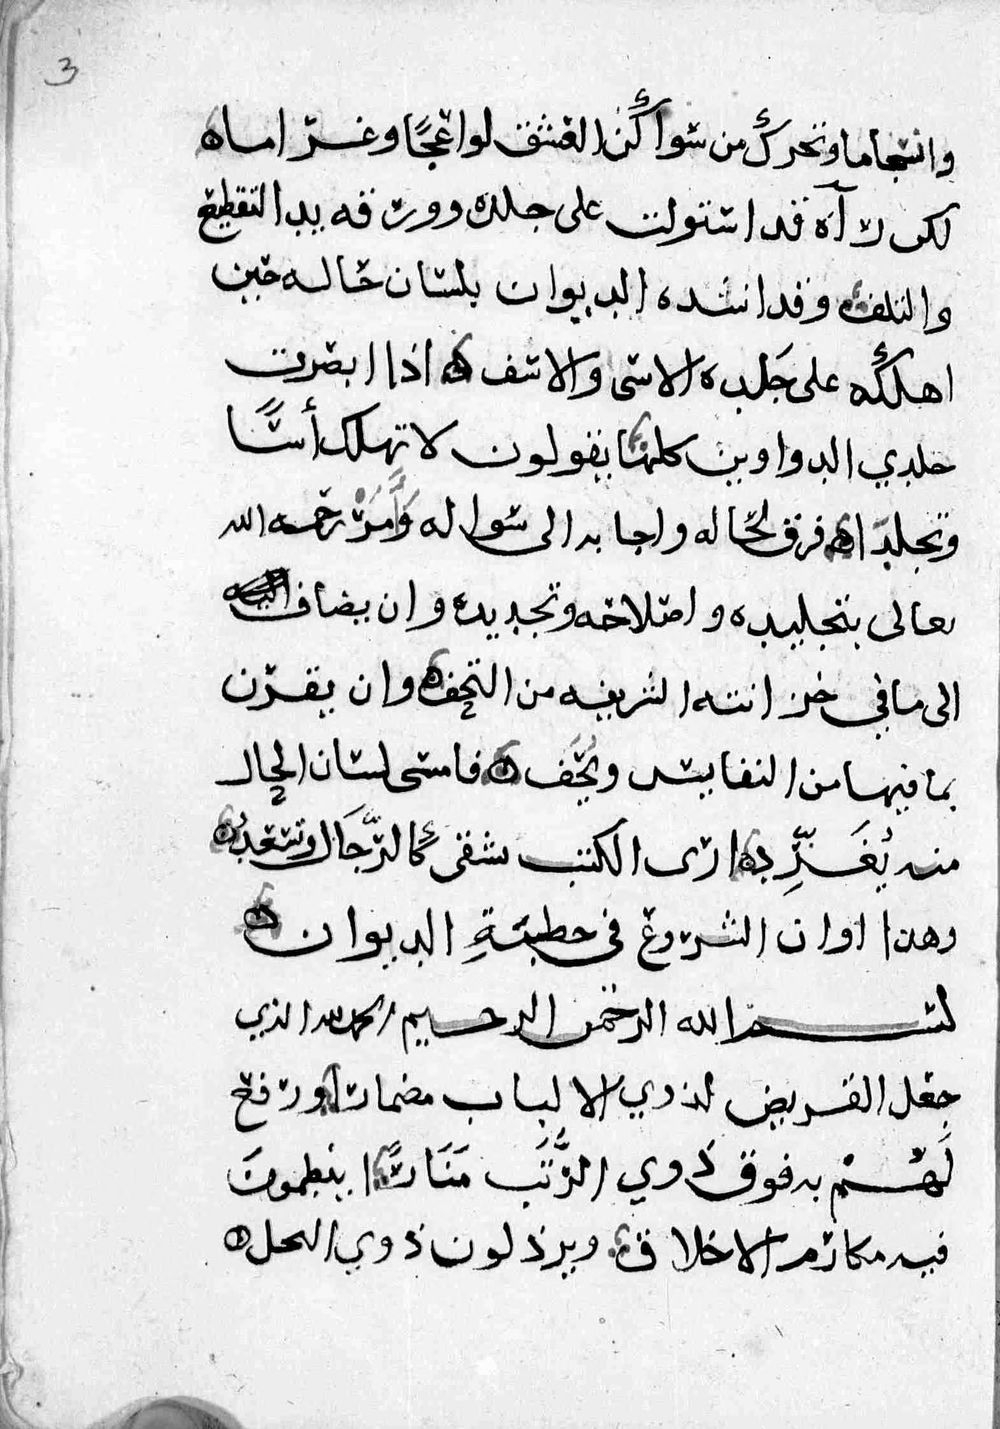 3
وانسجاما وتحرك من سواكن العشق لواعجًا وغراماه
لكن رآه قد استولت على جلده وورقه يد التقطيع
والتلف وقد انشده الديوان بلسان حاله حين
اهلكه على جَلده الاسى والاسف اذا ابصرت
جلدي الدواوين كلها يقولون لا تهلك أسًا
وتجلدا فرق لحاله واجابه الى سواله وأَمَرْ رحمه الله
تعالى بتجليده واصلاحه وتجديده وان يضاف
الى ما في خزانته الشريفه من التحف وان يقرن
بما فيها من النفايس ويُحَف فامسى لسان الحال
منه يُغَرِّد ارى الكتب تشقى كالرّجَال وتسعدُ
وهذا اوان الشروع في خطبَةِ الديوان
بسم الله الرحمن الرحيم الحمد لله الذي
جعل القريض لذوي الالباب مضمارا ورفع
لَهُمْ به فوق ذَوي الرُّتَب مَنَارًا ينظمونَ
فيه مكارم الاخلاق ويرذلون ذوي البخل